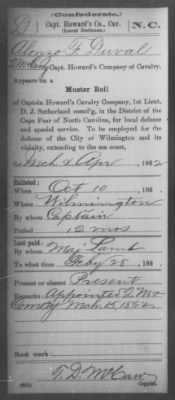 (Confederate.)
D Capt. Howard's Co., Cav. N.C.
(Local Defense.)
Alonzo F. Duval
Capt. Howard's Company of Cavalry.
Appears on a
Muster Roll
of Captain Howard's Cavalry Company, 1st Lieut.
D. J. Sutherland comd'g, in the District of the
Cape Fear of North Carolina, for local defense
and special service. To be employed for the
defense of the City of Wilmington and its
vicinity, extending to the sea coast,
Mch & Apr, 1862
Enlisted:
When Oct 10, 186
Where Wilmington
By whom Captain
Period 12 mos
Last paid:
By whom Maj. Lamb
To what time Feby 28, 186
Present or absent Present
Remarks: Appointed
Mch. 15, 1862
Book mark:
T. D. McCaw
Copyist.